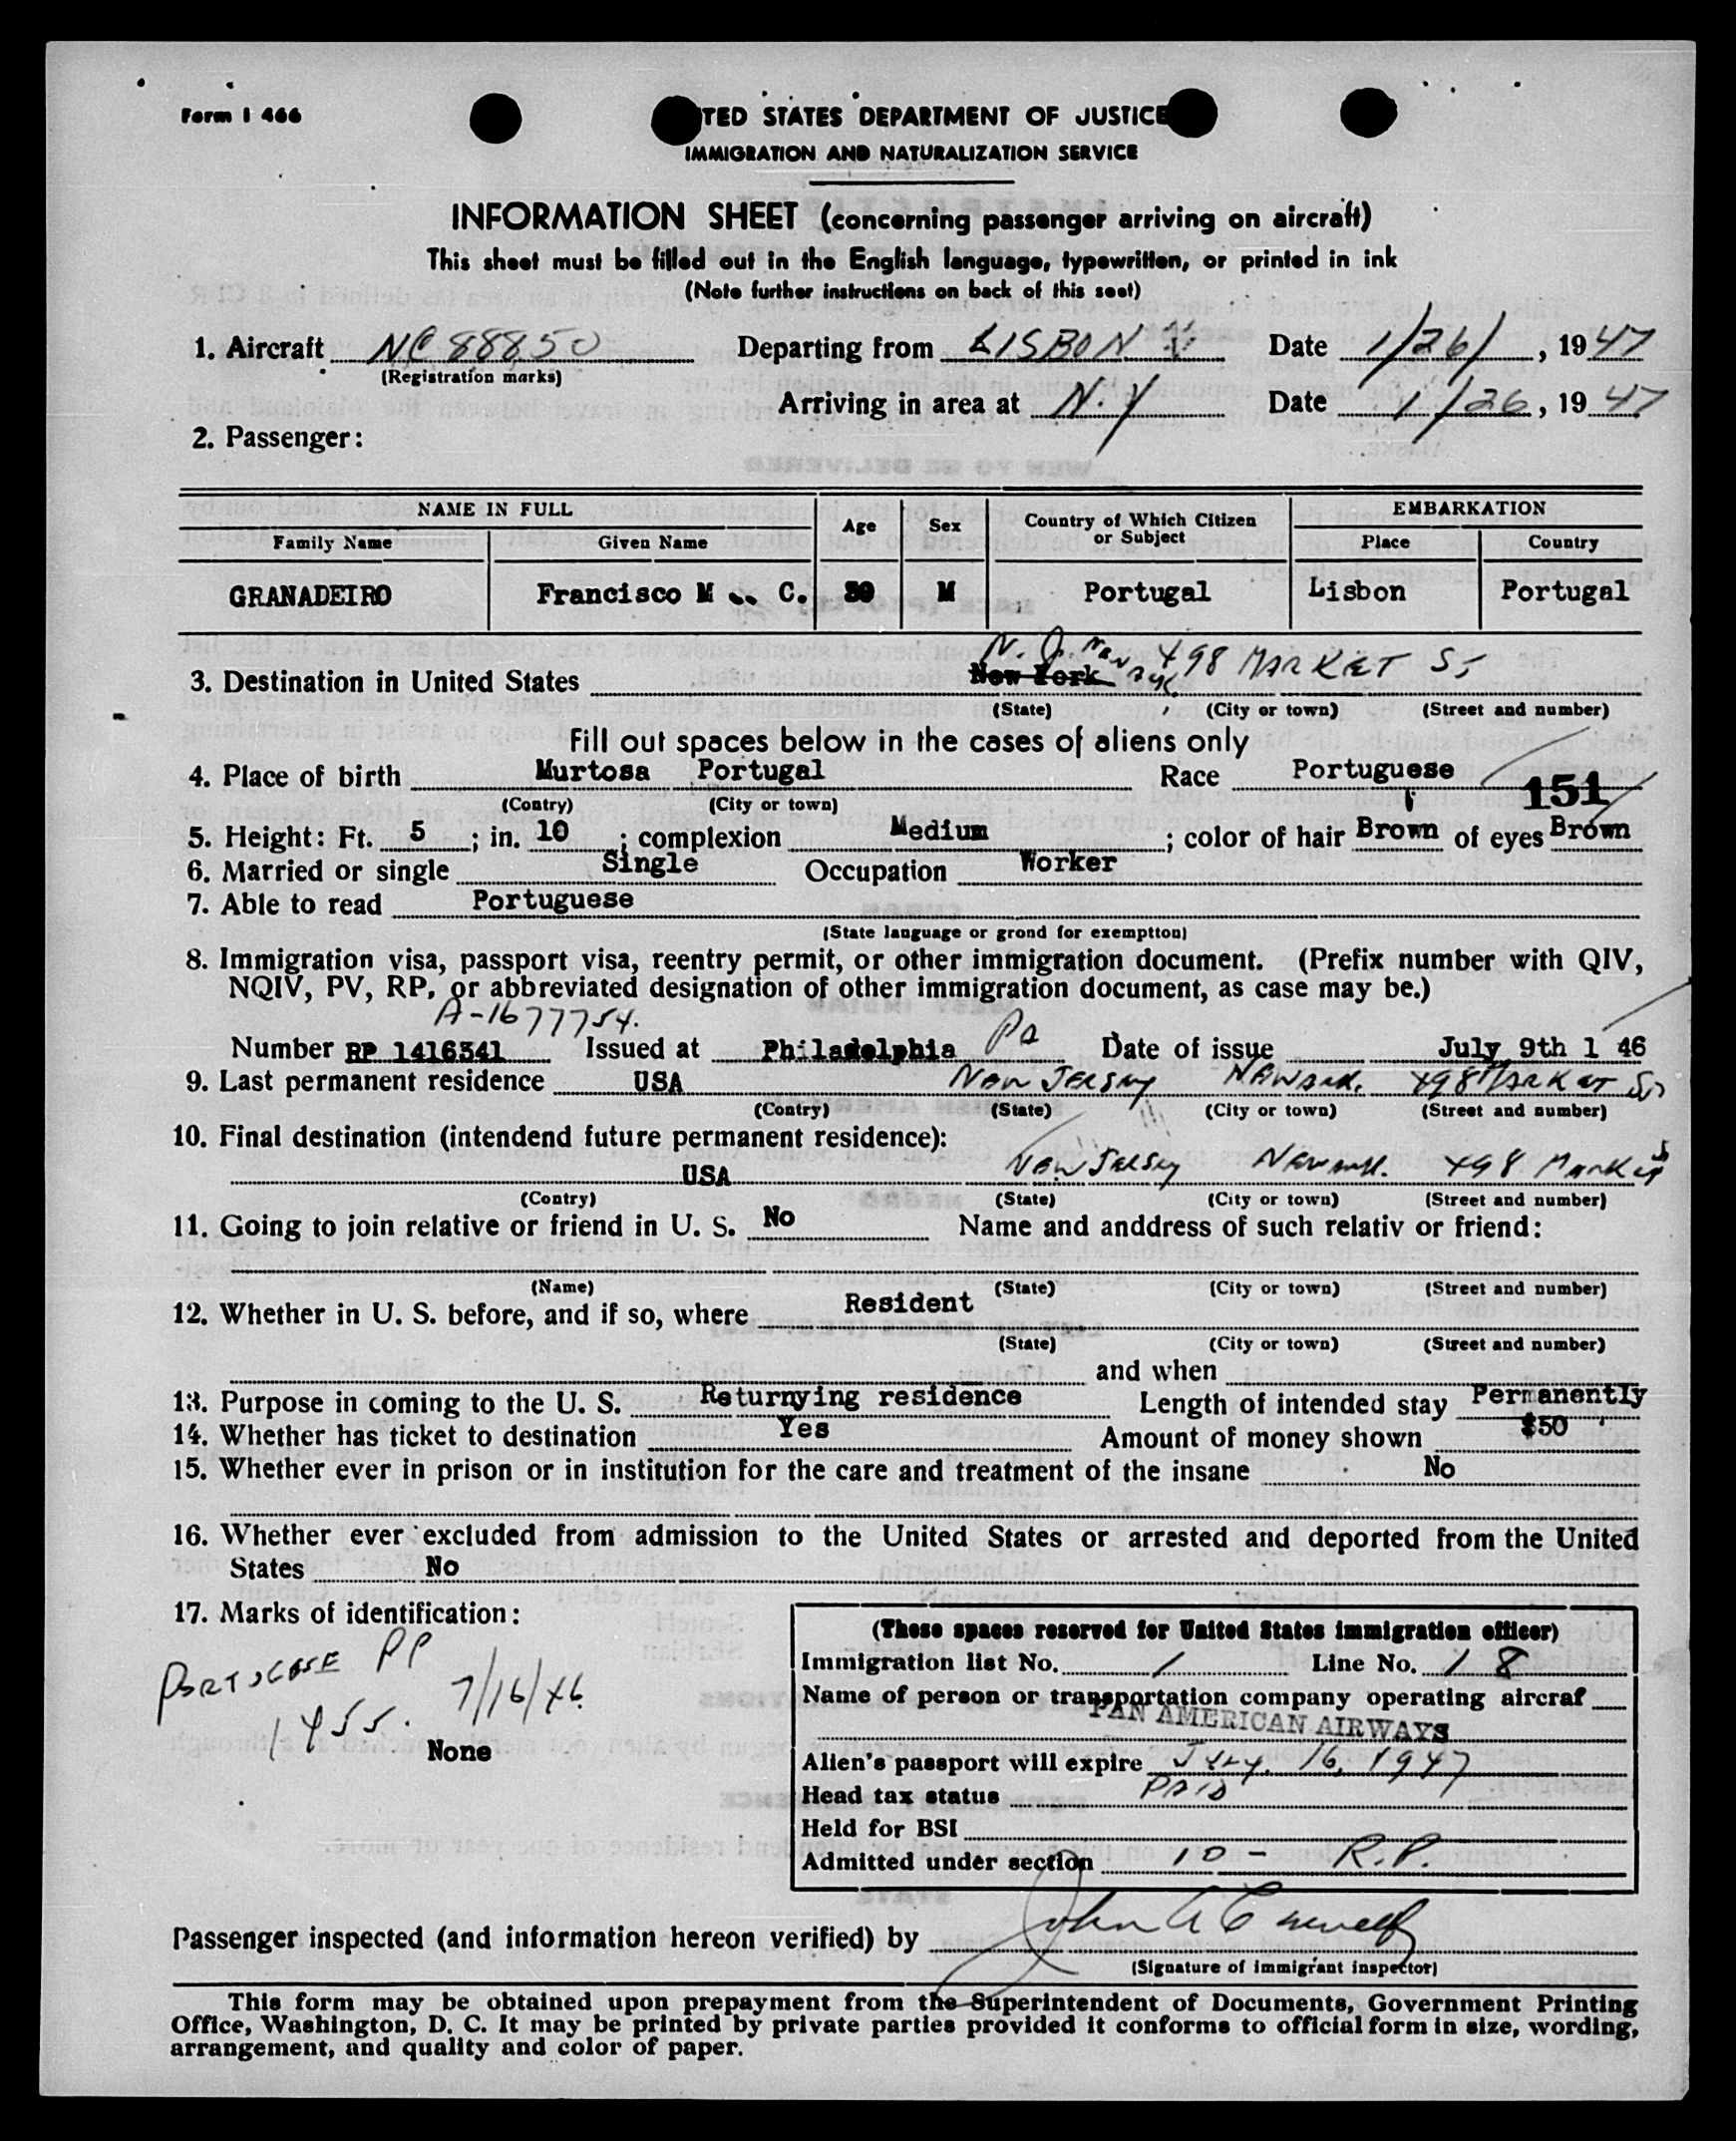 Form I 466
TED STATES DEPARTMENT OF JUSTICE
IMMIGRATION AND NATURALIZATION SERVICE
INFORMATION SHEET (concerning passenger arriving on aircraft)
This sheet must be filled out in the English language, typewritten, or printed in ink
(Note further instructions on back of this seet)
1. Aircraft NC 88850 Departing from LISBON Date 1/26/, 1947
(Registration marks)
Arriving in area at N.Y Date 1/26, 1947
2. Passenger:
NAME IN FULL Age Sex Country of Which Citizen or Subject EMBARKATION
Family Name Given Name Place Country
GRANADEIRO Francisco M. C. 39 M Portugal Lisbon Portugal
N. J. Newark 498 MARKET ST
3. Destination in United States New York
(State) (City or town) (Street and number)
Fill out spaces below in the cases of aliens only
4. Place of birth Murtosa Portugal Race Portuguese
(Contry) (City or town) 151
5. Height: Ft. 5; in. 10; complexion Medium; color of hair Brown of eyes Brown
6. Married or single Single Occupation Worker
7. Able to read Portuguese
(State language or grond for exemptton)
8. Immigration visa, passport visa, reentry permit, or other immigration document. (Prefix number with QIV,
NQIV, PV, RP, or abbreviated designation of other immigration document, as case may be.)
A-1677754.
Number RP 1416341 Issued at Philadelphia Pa Date of issue July 9th 1 46
9. Last permanent residence USA New Jersey Newark. 498 Market St
(Contry) (State) (City or town) (Street and number)
10. Final destination (intendend future permanent residence):
USA New Jersey Newark. 498 Market St
(Contry) (State) (City or town) (Street and number)
11. Going to join relative or friend in U. S. No Name and anddress of such relativ or friend:
(Name) (State) (City or town) (Street and number)
12. Whether in U. S. before, and if so, where Resident
(State) (City or town) (Street and number)
and when
13. Purpose in coming to the U. S. Returnying residence Length of intended stay Permanently
14. Whether has ticket to destination Yes Amount of money shown $50
15. Whether ever in prison or in institution for the care and treatment of the insane No
16. Whether ever excluded from admission to the United States or arrested and deported from the United
States No
17. Marks of identification:
PP
1455. 7/16/46
None
(These spaces reserved for United States immigration officer)
Immigration list No. 1 Line No. 18
Name of person or transportation company operating aircraf
PAN AMERICAN AIRWAYS
Alien's passport will expire July. 16, 1947
Head tax status PAID
Held for BSI
Admitted under section 10 - R.P.
Passenger inspected (and information hereon verified) by John A
(Signature of immigrant inspector)
This form may be obtained upon prepayment from the Superintendent of Documents, Government Printing
Office, Washington, D. C. It may be printed by private parties provided it conforms to official form in size, wording,
arrangement, and quality and color of paper.